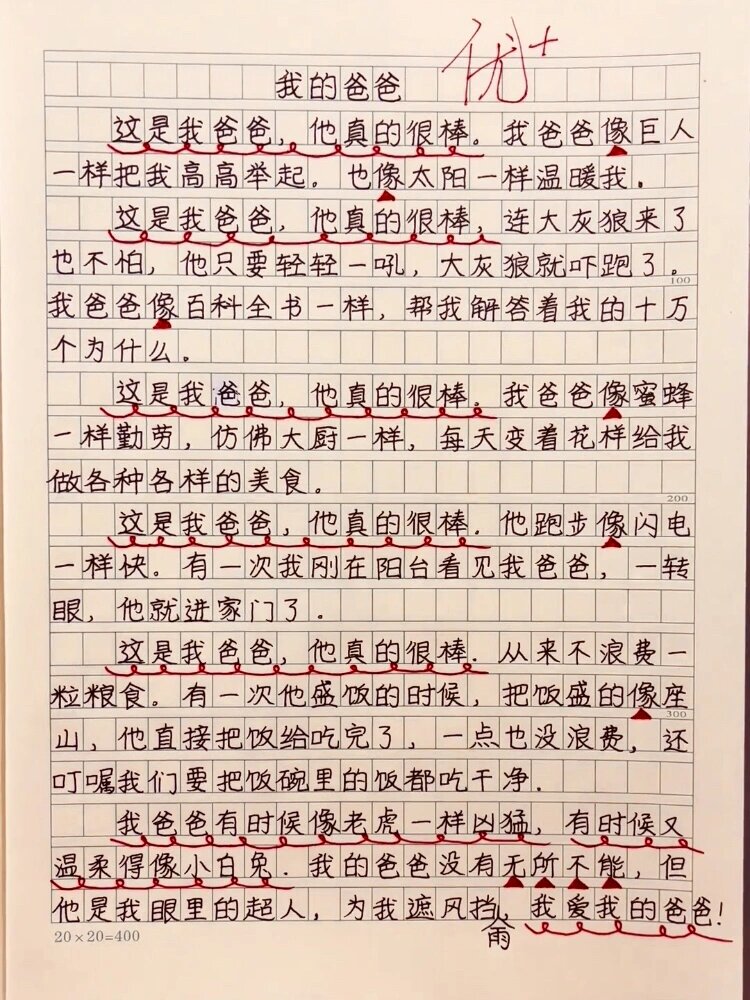 优+
我的爸爸
这是我爸爸，他真的很棒。我爸爸像巨人
一样把我高高举起。也像太阳一样温暖我。
这是我爸爸，他真的很棒，连大灰狼来了
也不怕，他只要轻轻一吼，大灰狼就吓跑了。
100
我爸爸像百科全书一样，帮我解答着我的十万
个为什么。
这是我爸爸，他真的很棒。我爸爸像蜜蜂
一样勤劳，仿佛大厨一样，每天变着花样给我
做各种各样的美食。
200
这是我爸爸，他真的很棒．他跑步像闪电
一样快。有一次我刚在阳台看见我爸爸，一转
眼，他就进家门了．
这是我爸爸，他真的很棒．从来不浪费一
粒粮食。有一次他盛饭的时候，把饭盛的像座
300
山，他直接把饭给吃完了，一点也没浪费，还
叮嘱我们要把饭碗里的饭都吃干净．
我爸爸有时候像老虎一样凶猛，有时候又
温柔得像小白兔．我的爸爸没有无所不能，但
他是我眼里的超人，为我遮风挡雨，我爱我的爸爸！
20×20=400